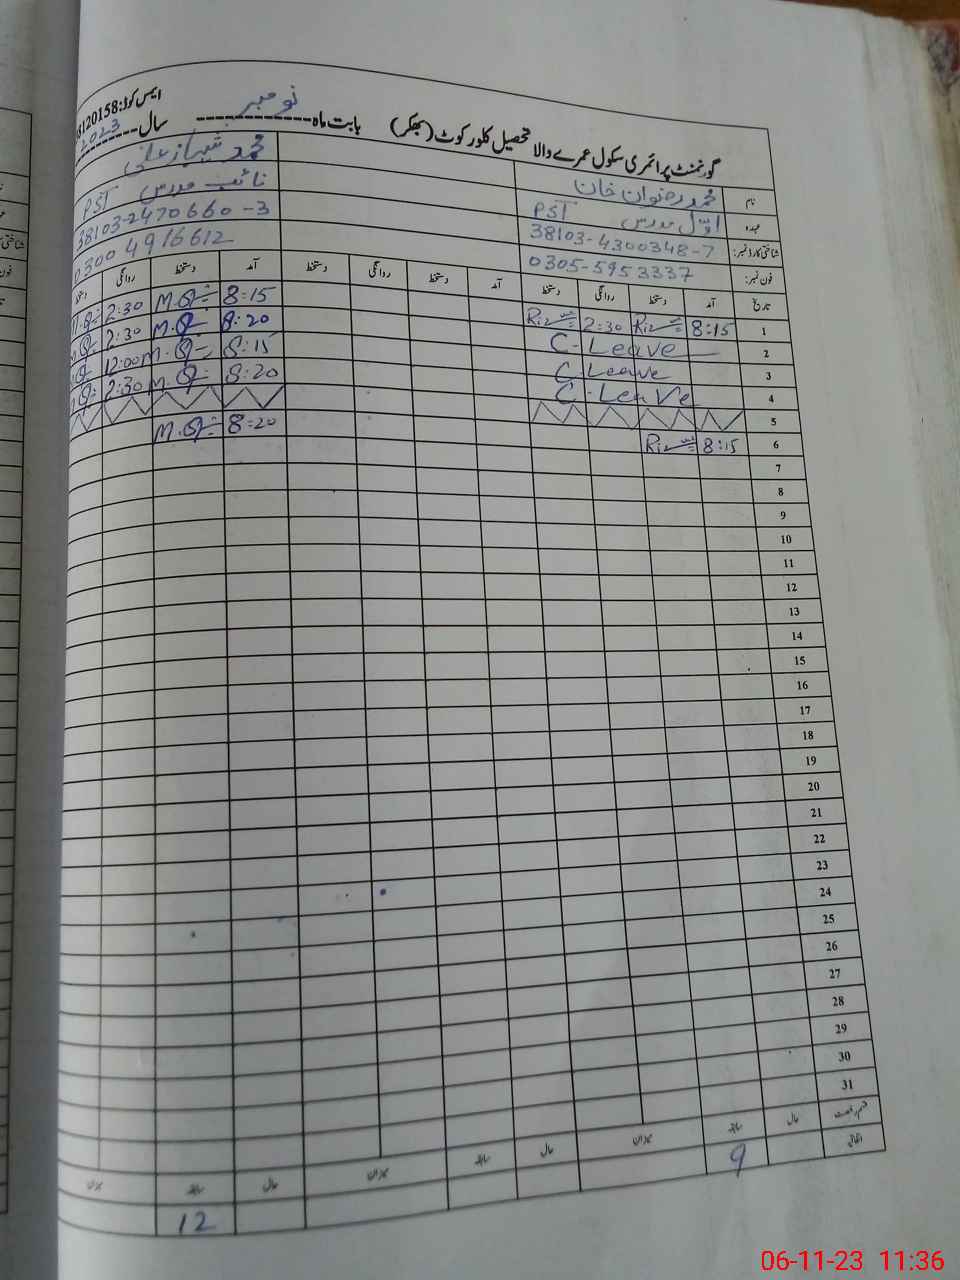 ایمس کوڈ:38120158
گورنمنٹ پرائمری سکول عمرے والا تحصیل کلورکوٹ (بھکر) بابت ماہ نومبر سال 2023
نام محمد رضوان خان محمد شہباز علی
عہدہ اوّل مدرس PST نائب مدرس PST
شناختی کارڈ نمبر: 38103-4300348-7 38103-2470660-3
فون نمبر: 0305-5953337 0300 4916612
تاریخ آمد دستخط روانگی دستخط آمد دستخط روانگی دستخط آمد دستخط روانگی
1 8:15 2:30 8:15 2:30
2 C-Leave 8:20 2:30
3 C-Leave 8:15 12:00
4 C-Leave 8:20 2:30
5
6 8:15 8:20
7
8
9
10
11
12
13
14
15
16
17
18
19
20
21
22
23
24
25
26
27
28
29
30
31
قسم رخصت حال سابقہ میزان حال سابقہ میزان حال سابقہ میزان
اتفاقی 9 12
06-11-23 11:36